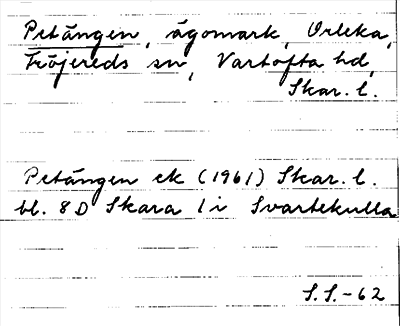 Petängen, ägomark, Orleka,
Fröjereds sn, Vartofta hd,
Skar. l.
Petängen ek (1961) Skar. l.
bl. 8D Skara 1i Svartekulla
S.S.-62